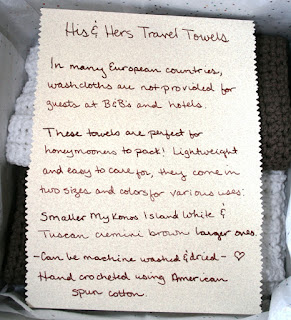 His & Hers Travel Towels
In many European countries,
washcloths are not provided for
guests at B&B's and hotels.
These towels are perfect for
honeymooners to pack! Lightweight
and easy to care for, they come in
two sizes and colors for various uses:
Smaller Mykonos island white &
Tuscan cremini brown larger ones.
-Can be machine washed & dried- ♡
Hand crocheted using American
spun cotton.